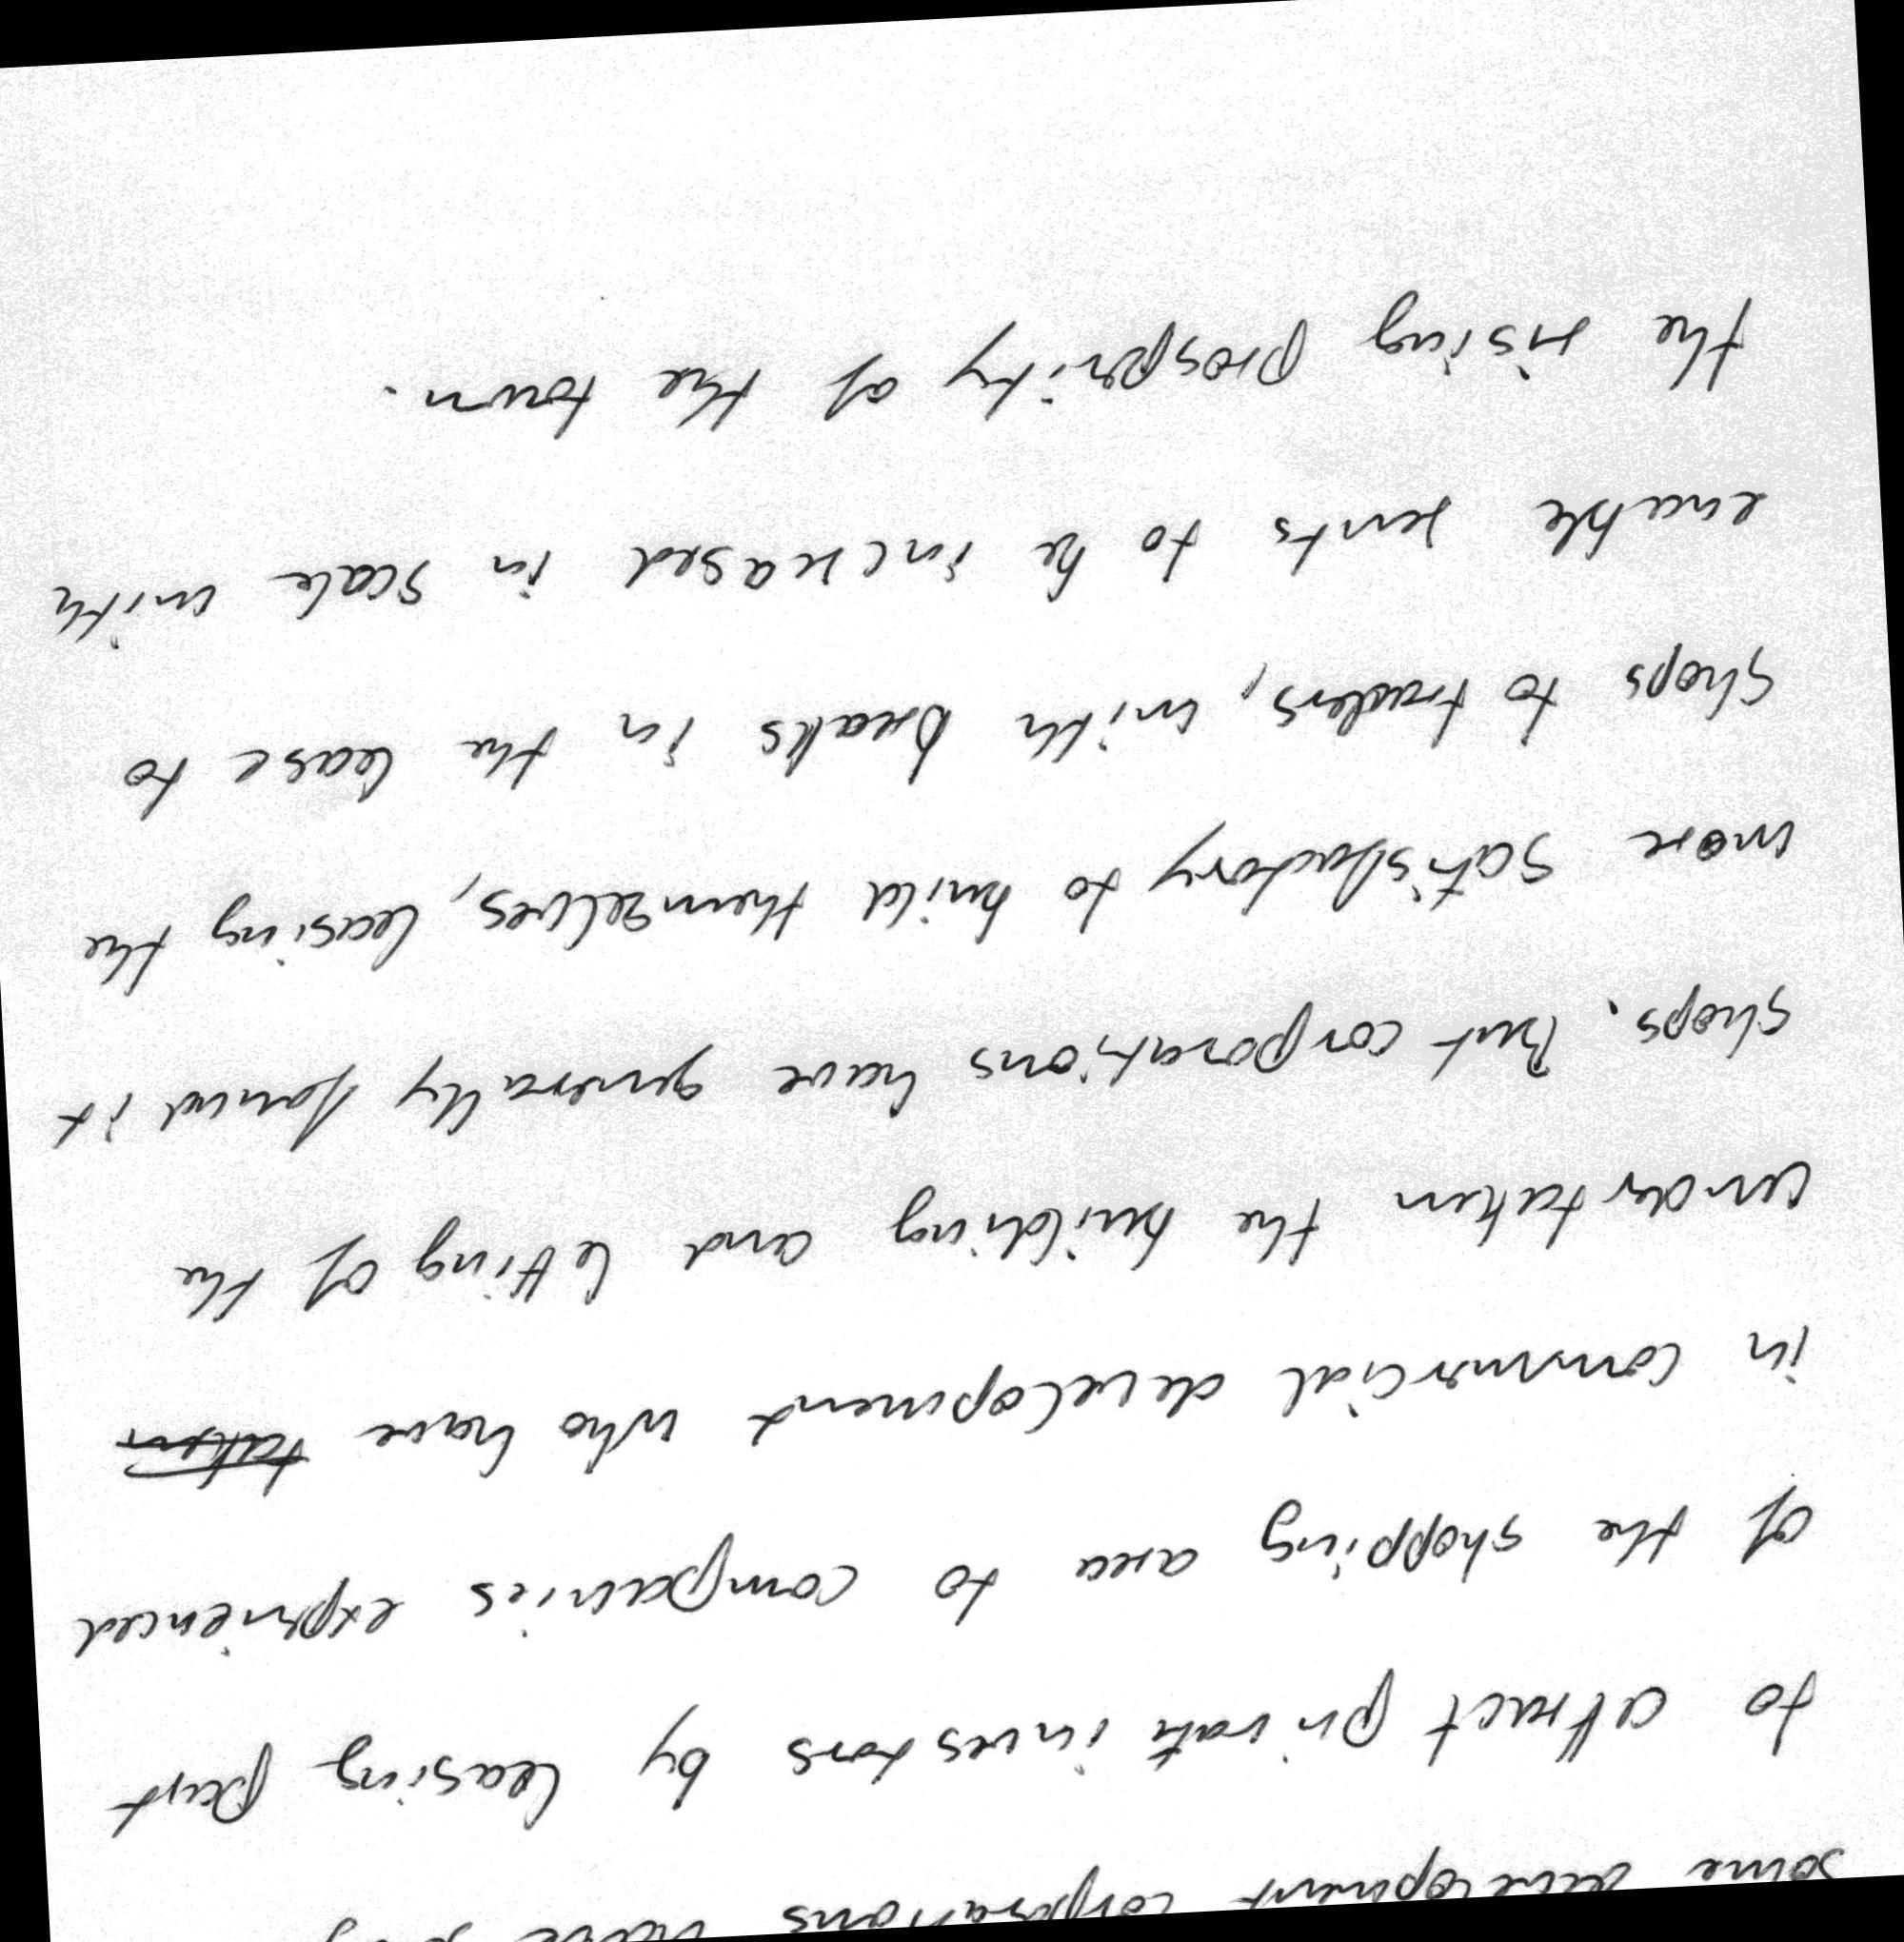 some development corporations have
to attract private investors by leasing part
of the shopping area to companies experienced
in commercial development who have taken
undertaken the building and letting of the
shops. But corporations have generally found it
more satisfactory to build themselves, leasing the
shops to traders, with breaks in the lease to
enable rents to be increased in scale with
the rising prosperity of the town.